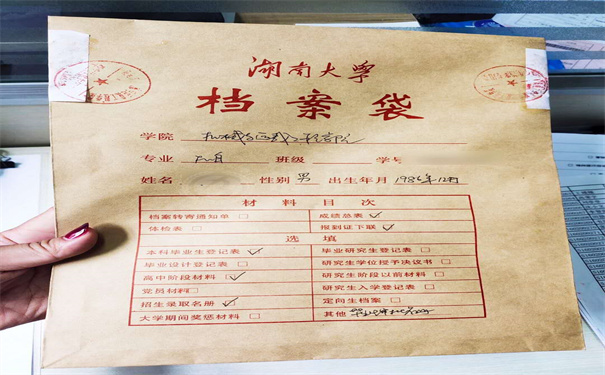 湖南大学
档案袋
学院
专业 班级 学号
姓名 性别 男 出生年月 1986年12月
材料目次
档案转寄通知单 □ 成绩总表 ✓
体检表 □ 报到证下联 ✓
选填
本科毕业生登记表 ✓ 毕业研究生登记表 □
毕业设计登记表 □ 研究生学位授予决议书 □
高中阶段材料 ✓ 研究生阶段以前材料 □
党员材料 □ 研究生入学登记表 □
招生录取名册 ✓ 定向生档案 □
大学期间奖惩材料 □ 其他